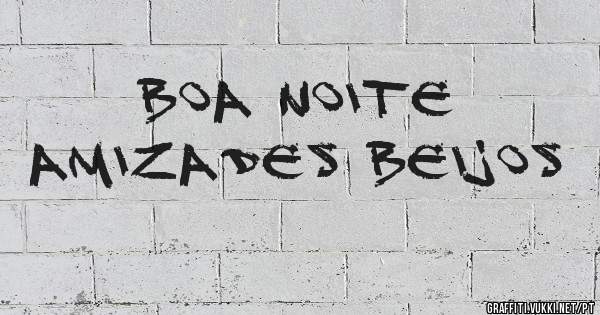 BOA NOITE
AMIZADES BEIJOS
GRAFFITI.VUKKI.NET/PT